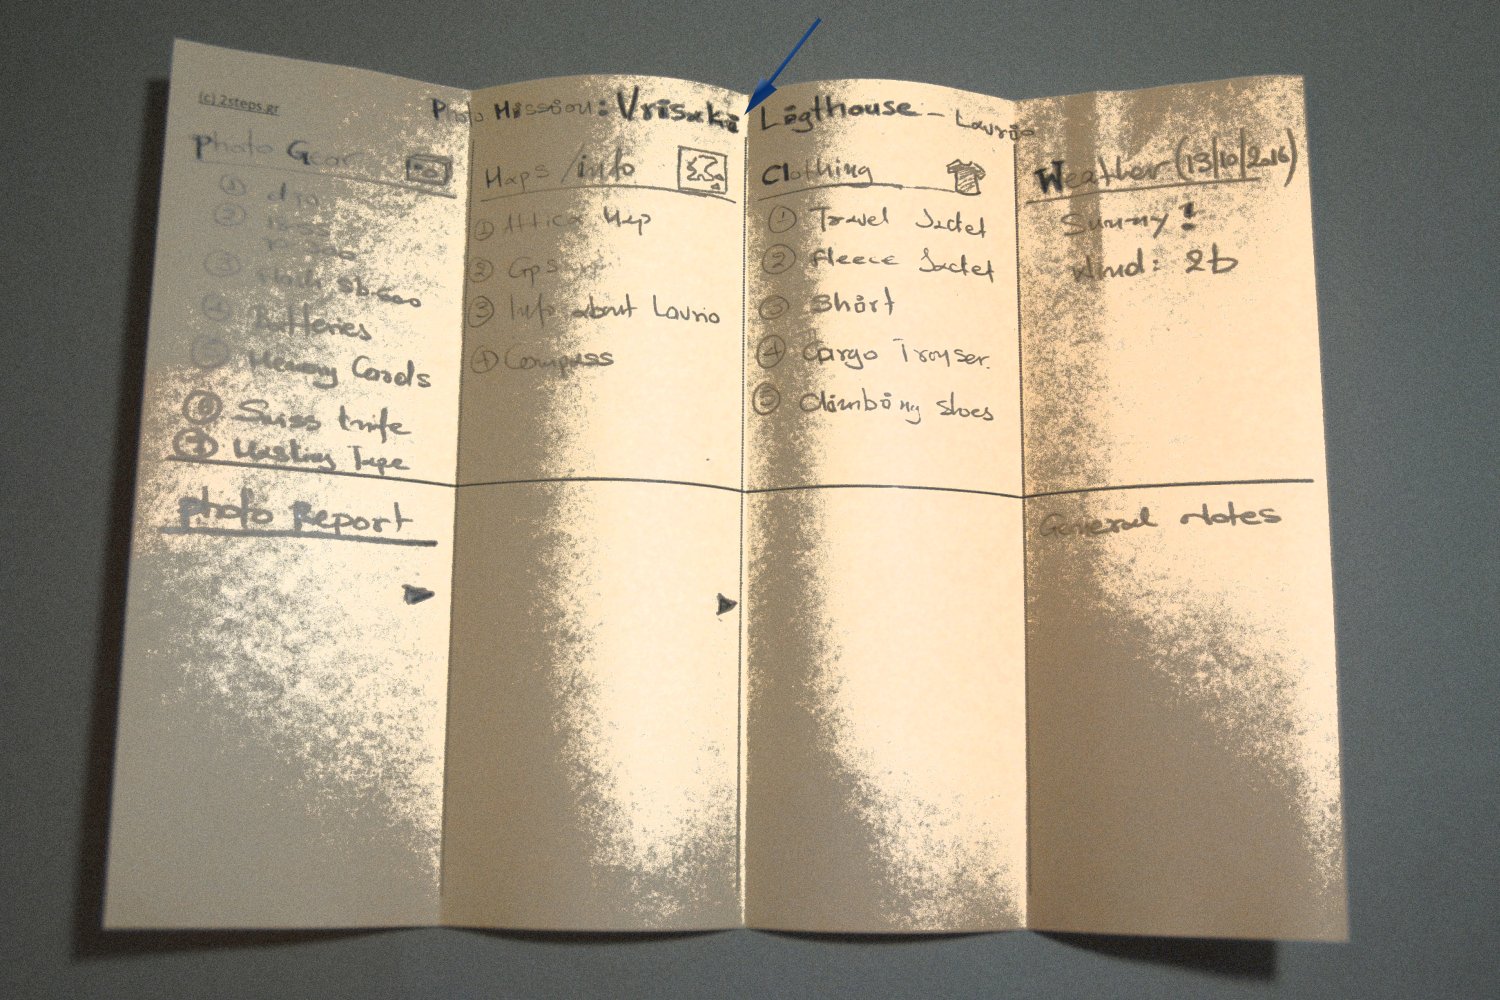 (c) 2steps.gr
Photo Mission: Vrisaki Ligthouse - Lavrio
Photo Gear
①
②
③ sb-600
④ Batteries
⑤ Memory Cards
⑥ Swiss knife
⑦ Masking Tape
Maps/info
① Attica Map
② Gps
③ Info about Lavrio
④ Compass
Clothing
① Travel Jacket
② Fleece Jacket
③ Shirt
④ Cargo Trouser.
⑤ Climbing shoes
Weather (13/10/2016)
Sunny!
Wind: 2b
Photo Report
General Notes